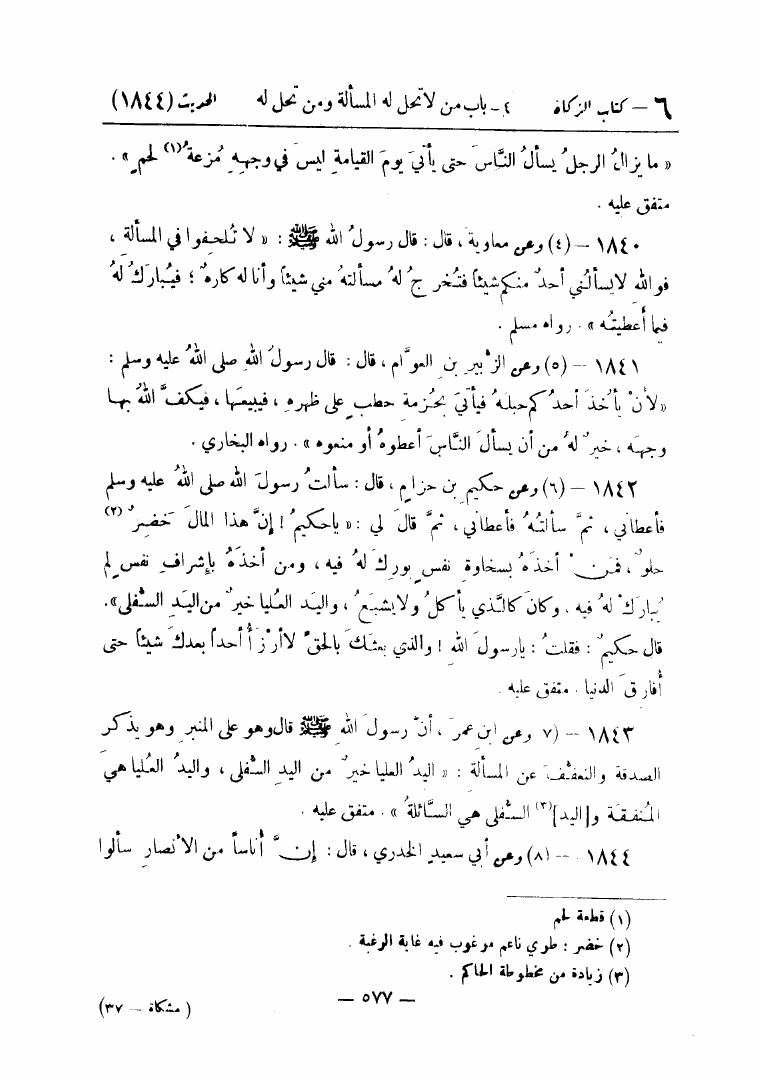 ٦ – كتاب الزكاة ٤ - باب من لا تحل له المسألة ومن تحل له الحديث (١٨٤٤)
« ما يزالُ الرجلُ يسألُ النَّاسَ حتى يأتيَ يومَ القيامةِ ليسَ في وجههِ مُزعةُ(١) لحمٍ » .
متفق عليه .
١٨٤٠ – (٤) وعن معاويةَ ، قال : قال رسولُ الله ﷺ : « لا تُلحِفوا في المسألة ،
فواللهِ لا يسألُني أحدٌ منكم شيئاً فتُخرِجُ لهُ مسألتهُ مني شيئاً وأنا له كارهٌ ؛ فيُباركَُ لهُ
فيما أعطيتُه » . رواه مسلم .
١٨٤١ – (٥) وعن الزُّبيرِ بنِ العوَّام ، قال : قال رسولُ اللهِ صلى اللهُ عليه وسلم :
«لأنْ يأخُذَ أحدُكم حبلهُ فيأتيَ بحُزمةِ حطبٍ على ظهرهِ ، فيبيعَها ، فيكفَّ اللهُ بها
وجهَه ، خيرٌ لهُ من أن يسألَ النَّاسَ أعطوهُ أو منعوه » . رواه البخاري .
١٨٤٢ – (٦) وعن حكيمِ بنِ حزامٍ ، قال : سألتُ رسولَ الله صلى اللهُ عليه وسلم
فأعطاني ، ثمَّ سألتُهُ فأعطاني ، ثمَّ قالَ لي : « يا حكيمُ ! إنَّ هذا المالَ خَضِرٌ(٢)
حلوٌ ، فمَنْ أخذَهُ بسخاوةِ نفسٍ بوركَ لهُ فيه ، ومن أخذَهُ بإشرافِ نفسٍ لم
يُباركْ لهُ فيه . وكانَ كالَّذي يأكلُ ولا يشبَعُ ، واليدُ العُليا خيرٌ من اليدِ السُّفلى» .
قال حكيمٌ : فقلتُ : يا رسولَ اللهِ ! والذي بعثكَ بالحقِّ لا أرْزَأُ أحداً بعدكَ شيئاً حتى
أُفارِقَ الدنيا . متفق عليه .
١٨٤٣ – (٧ وعن ابنِ عمرَ ، أنَّ رسولَ اللهِ ﷺ قال وهو على المنبرِ وهو يذكر
الصدقة والتعفُّفَ عن المسألة : « اليدُ العليا خيرٌ من اليدِ السُّفلى ، واليدُ العُليا هيَ
المُنفقة و[اليد](٣) السُّفلى هي السَّائلةُ » . متفق عليه .
١٨٤٤ – (٨) وعن أبي سعيدٍ الخدري ، قال : إنَّ أُناساً من الأنصارِ سألوا
(١) قطعة لحم
(٢) خضر : طري ناعم مرغوب فيه غاية الرغبة .
(٣) زيادة من مخطوطة الحاكم .
– ٥٧٧ –
( مشكاة – ٣٧)